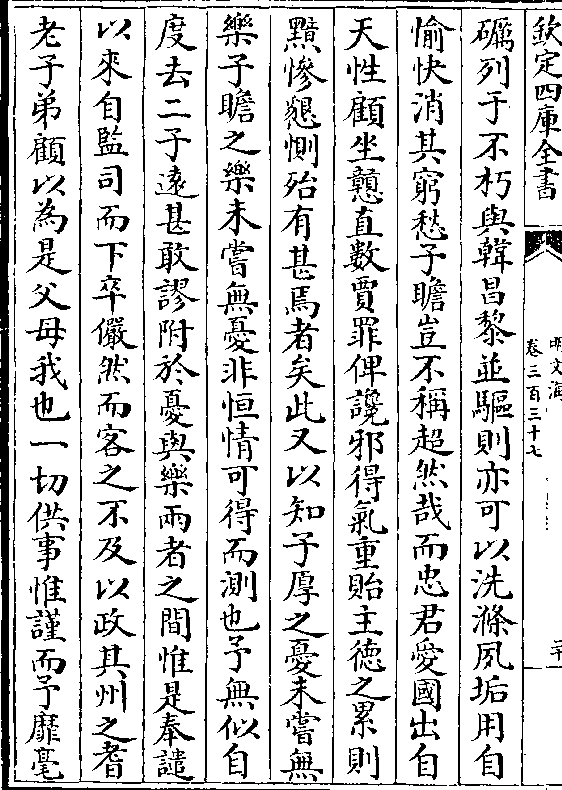 欽定四庫全書
明文海
卷三百三十七
二十
礪列于不朽與韓昌黎並驅則亦可以洗滌夙垢用自
愉快消其窮愁子瞻豈不稱超然哉而忠君愛國出自
天性顧坐戇直數賈罪俾讒邪得氣重貽主德之累則
黯慘懇惻殆有甚焉者矣此又以知子厚之憂未嘗無
樂子瞻之樂未嘗無憂非恒情可得而測也予無似自
度去二子遠甚敢謬附於憂與樂兩者之間惟是奉譴
以來自監司而下卒儼然而客之不及以政其州之耆
老子弟顧以為是父母我也一切供事惟謹而予靡毫